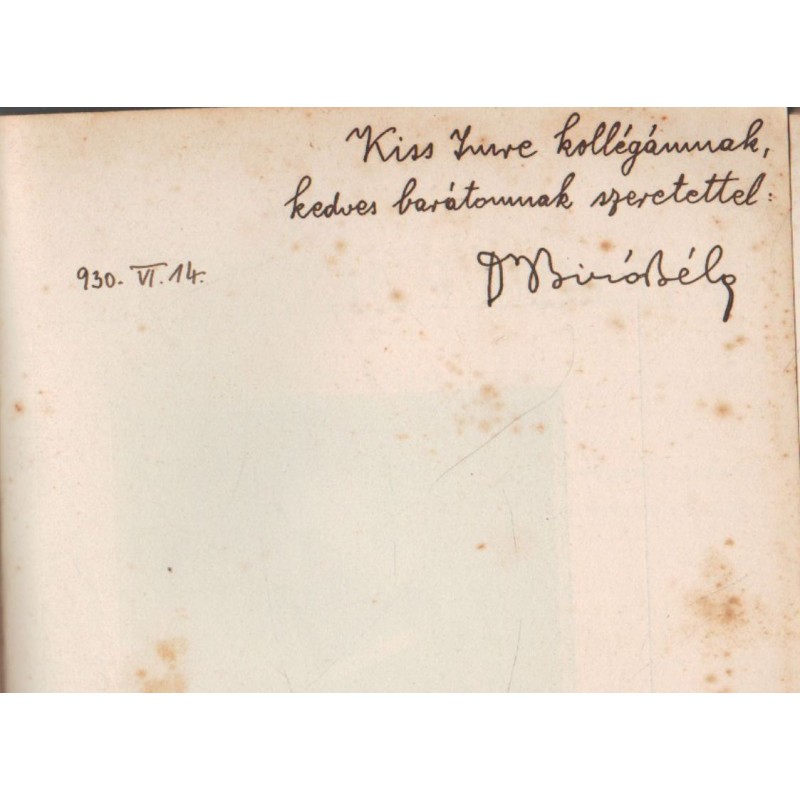 Kiss Imre kollégámnak,
kedves barátomnak szeretettel:
930. VI. 14.
Dr Biró Béla